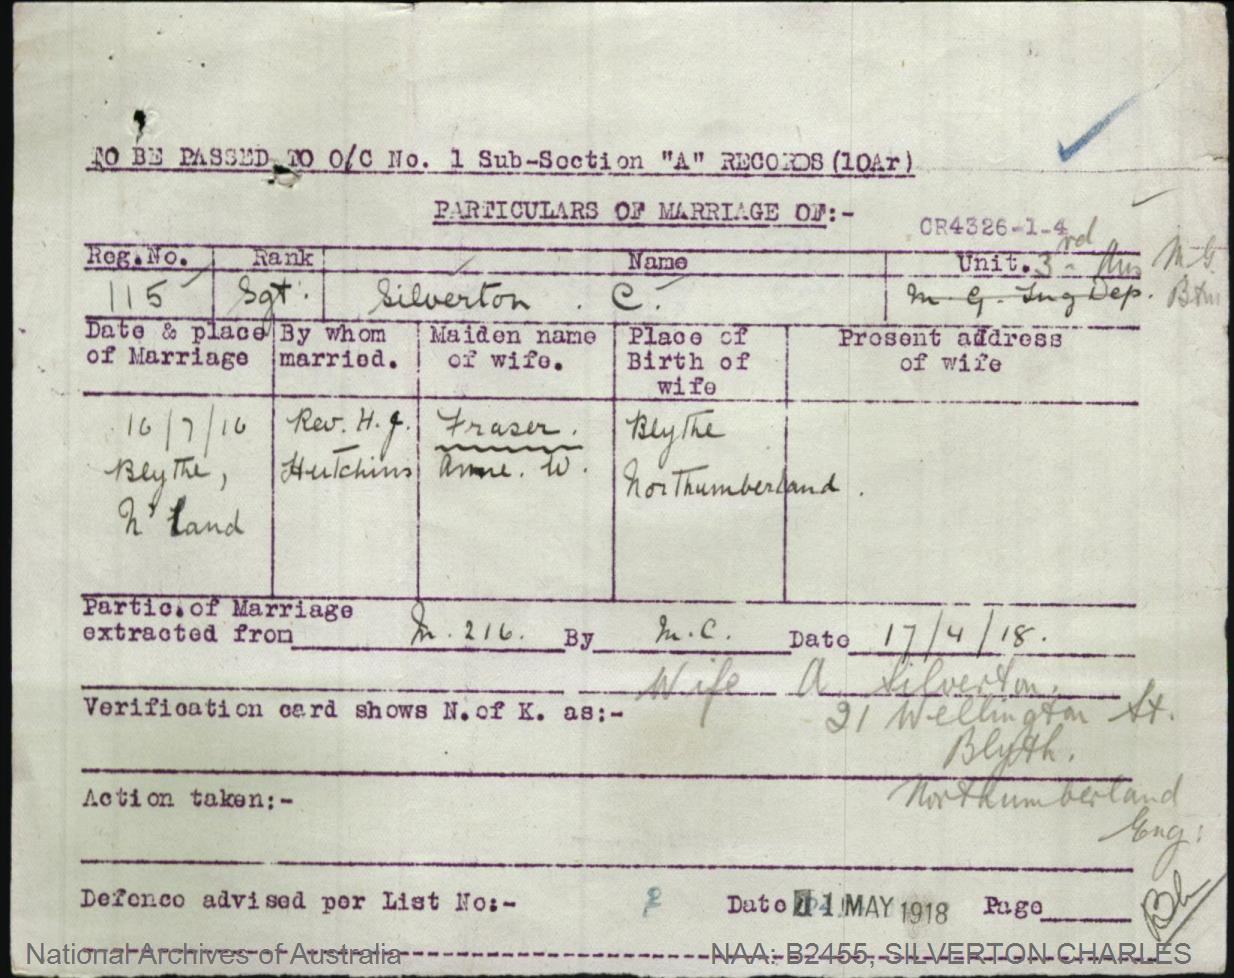 TO BE PASSED TO O/C No. 1 Sub-Section "A" RECORDS (10Ar)
PARTICULARS OF MARRIAGE OF:-
CR4326-1-4
Reg.No. Rank Name Unit. 3rd Aus M.G. Btn
115 Sgt. Silverton . C. M. G. Tng Dep.
Date & place of Marriage
By whom married.
Maiden name of wife.
Place of Birth of wife
Present address of wife
16/7/16
Blythe,
N'land
Rev. H. J.
Hutchins
Fraser.
Anne. W.
Blythe
Northumberland.
Partic. of Marriage
extracted from M. 216. By M.C. Date 17/4/18.
Wife A. Silverton.
Verification card shows N.of K. as:-
21 Wellington St.
Blyth.
Northumberland
Eng:
Action taken:-
Defence advised per List No:- 2 Date 1 MAY 1918 Page
National Archives of Australia
NAA: B2455, SILVERTON CHARLES